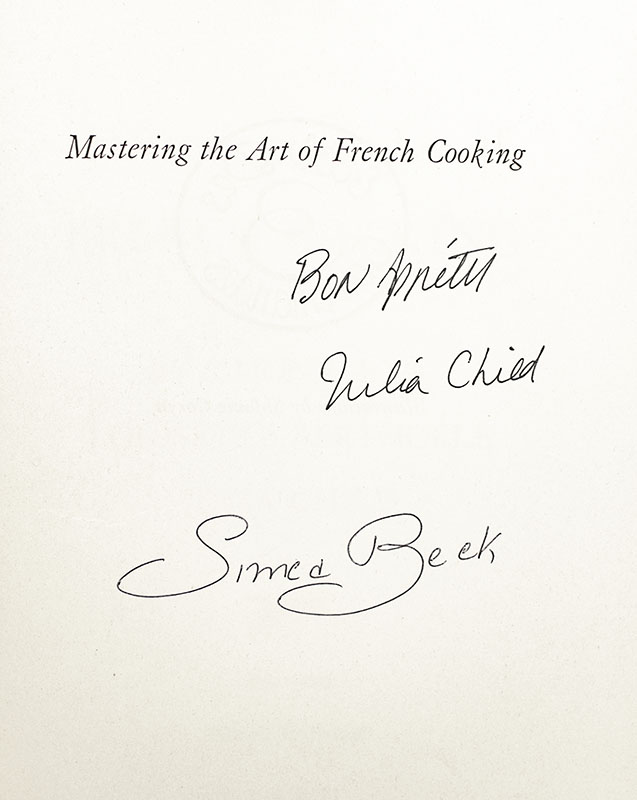 Mastering the Art of French Cooking
Bon Appétit
Julia Child
Simca Beck